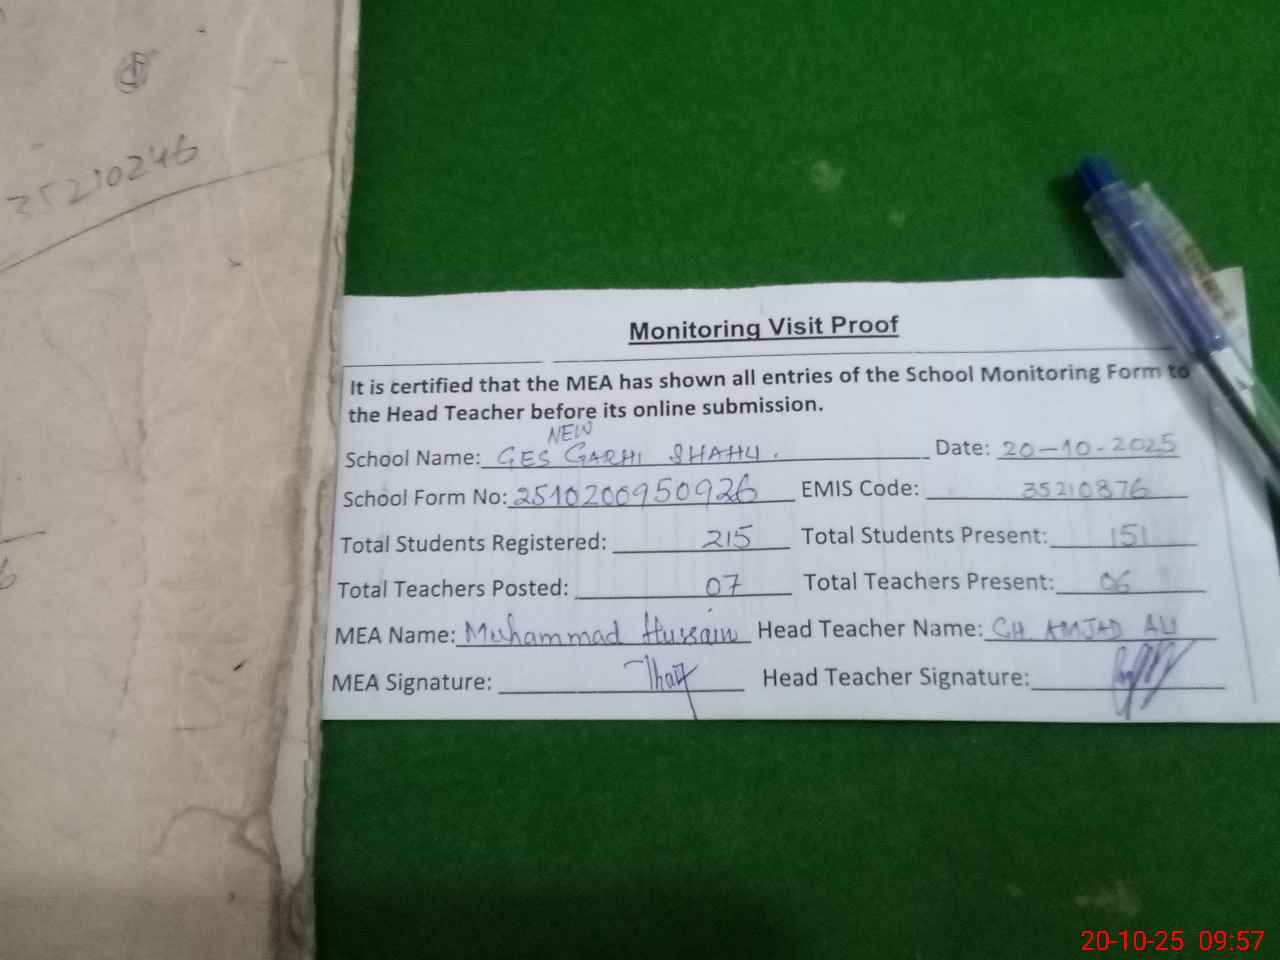 35210246
Monitoring Visit Proof
It is certified that the MEA has shown all entries of the School Monitoring Form to
the Head Teacher before its online submission.
NEW
School Name: GES GARHI SHAHU. Date: 20-10-2025
School Form No: 2510200950926 EMIS Code: 35210876
Total Students Registered: 215 Total Students Present: 151
Total Teachers Posted: 07 Total Teachers Present: 06
MEA Name: Muhammad Hussain Head Teacher Name: CH AMJAD ALI
MEA Signature: Head Teacher Signature:
20-10-25 09:57